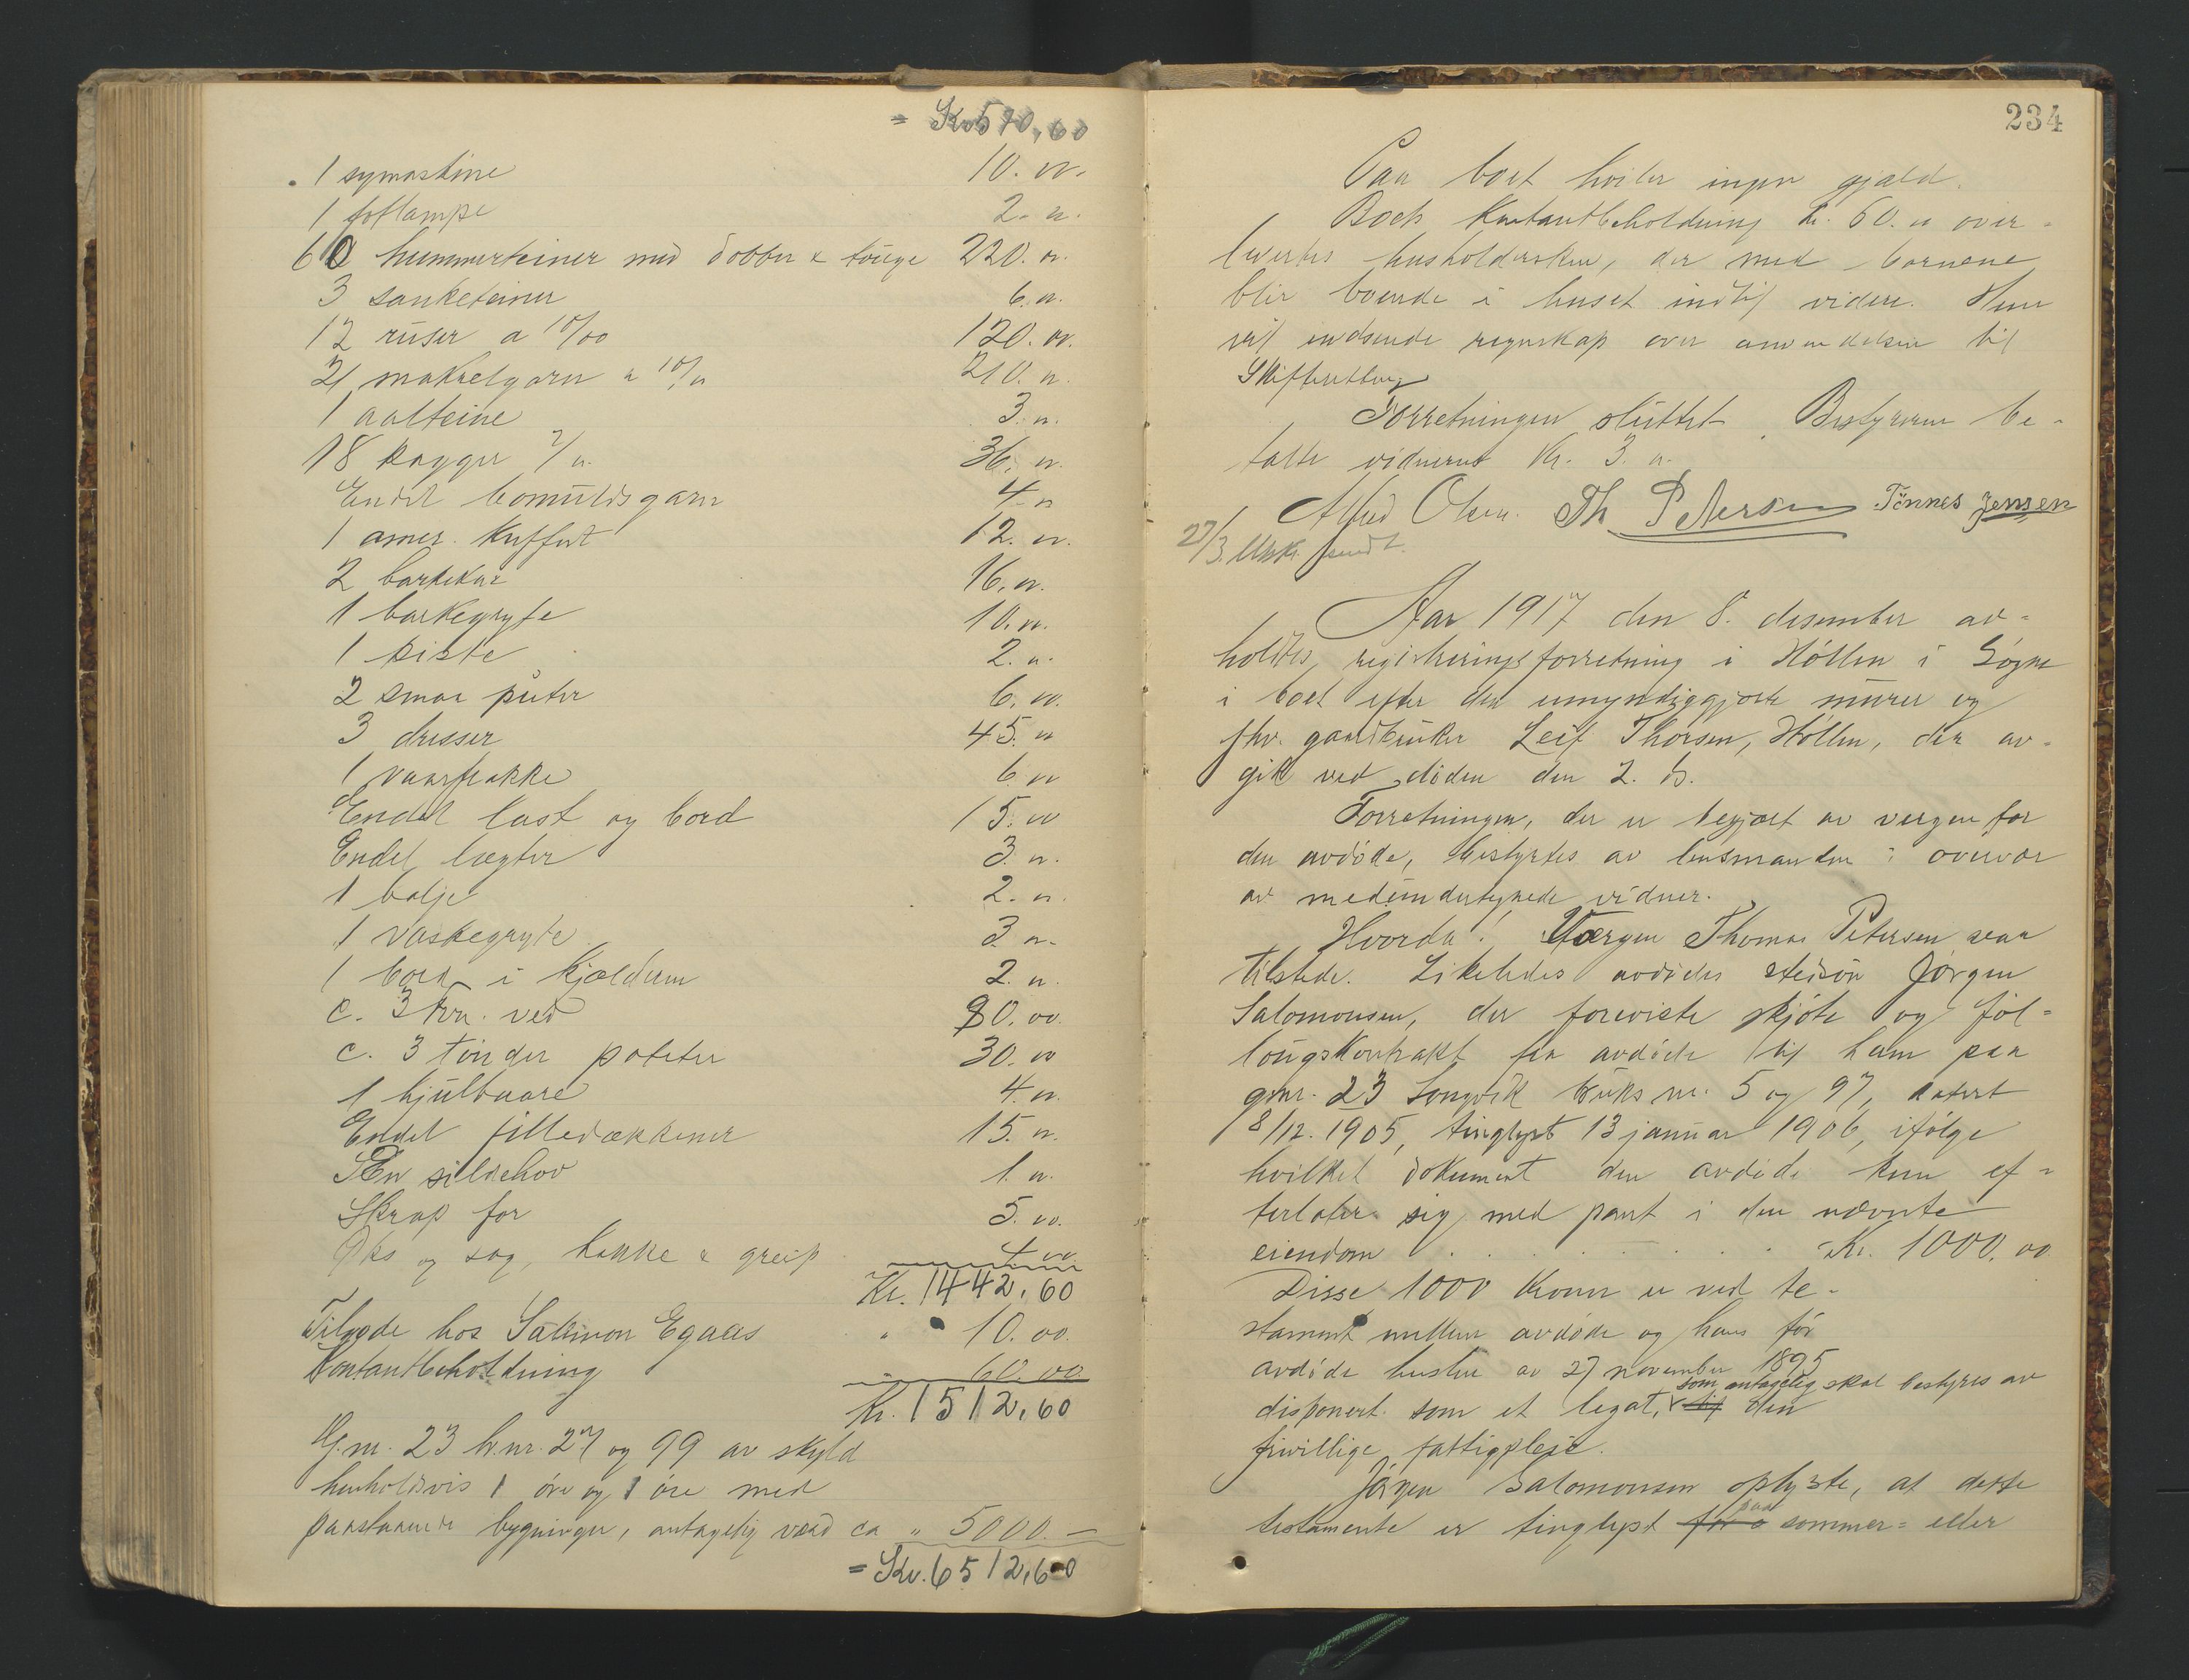 = Kr. 570,60
1 symaskine 10. 00.
1 loftlampe 2. 00.
60 hummerteiner med dobber & touge 220. 00.
3 sanketeiner 6. 00.
12 ruser a 10/00 120. 00.
21 makrelgarn a 10/00 210. 00.
1 aalteine 3. 00.
18 kagger 2/00 36. 00.
Endel bomuldsgarn 4. 00
1 amer. Kuffert 12. 00.
2 barkekar 16. 00.
1 barkegryte 10. 00.
1 kiste 2. 00.
2 smaa puter 6. 00.
3 dresser 45. 00
1 vaarfrakke 6 00
Endel last og bord 15. 00
Endel lægter 3. 00.
1 balje 2. 00.
1 vaskegryte 3. 00.
1 bord i kjælderen 2. 00.
c. 3 fvn. ved 80. 00.
c. 3 tønder poteter 30. 00
1 hjulbaare 4. 00.
Endel filledækkener 15. 00.
En sildehov 1. 00.
Skrap for 5. 00.
Øks og sag, hakke & greip 4 00
Kr. 1442,60
Tilgode hos Salimon Egaas " 10. 00.
Kontantbeholdning " 60. 00
Kr. 1512,60
G.nr. 23 b.nr. 27 og 99 av skyld
henholdsvis 1 øre og 1 øre med
paastaaende bygninger, antagelig værd ca " 5000. —
= Kr. 6512,60
234
Paa boet hviler ingen gjæld.
Boets Kontantbeholdning kr. 60. 00 over-
levertes husholdersken, der med barnene
blir boende i huset indtil videre. Hun
vil indsende regnskap over anvendelsen til
Skifteretten
Forretningen sluttet. Bestyreren be-
talte vidnerne Kr. 3. 00.
Alfred Olsen. Th Petersen Tönnes Jensen
27/3. Utskr. sendt.
Aar 1917 den 8. desember av-
holdtes registreringsforretning i Höllen i Sögne
i boet efter den umyndiggjorte murer og
fhv. gaardbruker Leif Thorsen, Höllen, der av-
gik ved döden den 2. ds.
Forretningen, der er begjært av vergen for
den avdöde, bestyrtes av lensmanden i overvær
av medundertegnede vidner.
Hvorda! Værgen Thomas Petersen var
tilstede. Likeledes avdödes stedsön Jörgen
Salomonsen, der foreviste skjöte og föl-
lougskontrakt fra avdöde til ham paa
gnr. 23 Songvik bruks nr. 5 og 97, datert
8/12. 1905, tinglyst 13 januar 1906, ifölge
hvilket dokument den avdöde kun ef-
terlater sig med pant i den nævnte
eiendom . . . . . . Kr. 1000. 00
Disse 1000 Kroner er ved te-
stament mellem avdöde og hans för
avdöde hustru av 27 november 1895
disponert som et legat, som antagelig skal bestyres av til den
frivillige fattigpleje.
Jörgen Salomonsen oplyste, at dette
testamente er tinglyst paa sommer- eller